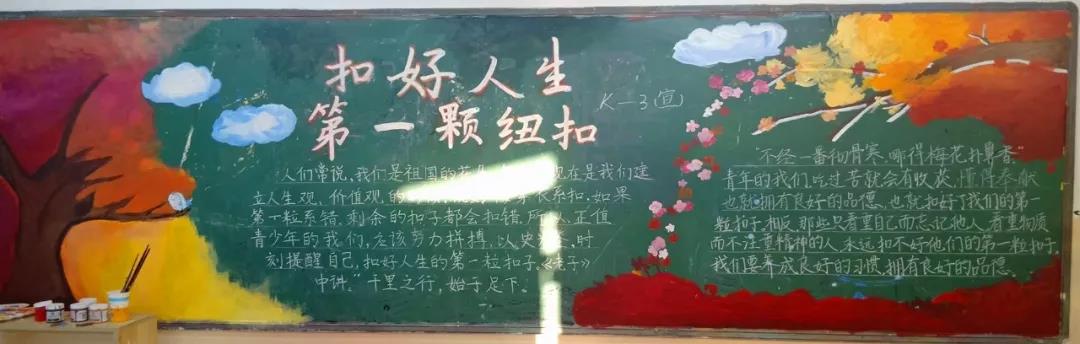 扣好人生
第一颗纽扣
K—3(宣)
人们常说,我们是祖国的花 现在是我们建
立人生观、价值观的 系扣,如果
第一粒系错,剩余的扣子都会扣错,所以,正值
青少年的我们,应该努力拼搏,以史 时
刻提醒自己,扣好人生的第一粒扣子,《老子》
中讲:“千里之行,始于足下。
“不经一番彻骨寒,哪得梅花扑鼻香”
青年的我们,吃过苦就会有收获,懂得奉献
也就拥有良好的品德,也就扣好了我们的第一
粒扣子,相反,那些只看重自己而忘记他人,看重物质
而不注重精神的人,永远扣不好他们的第一粒扣子,
我们要养成良好的习惯,拥有良好的品德。